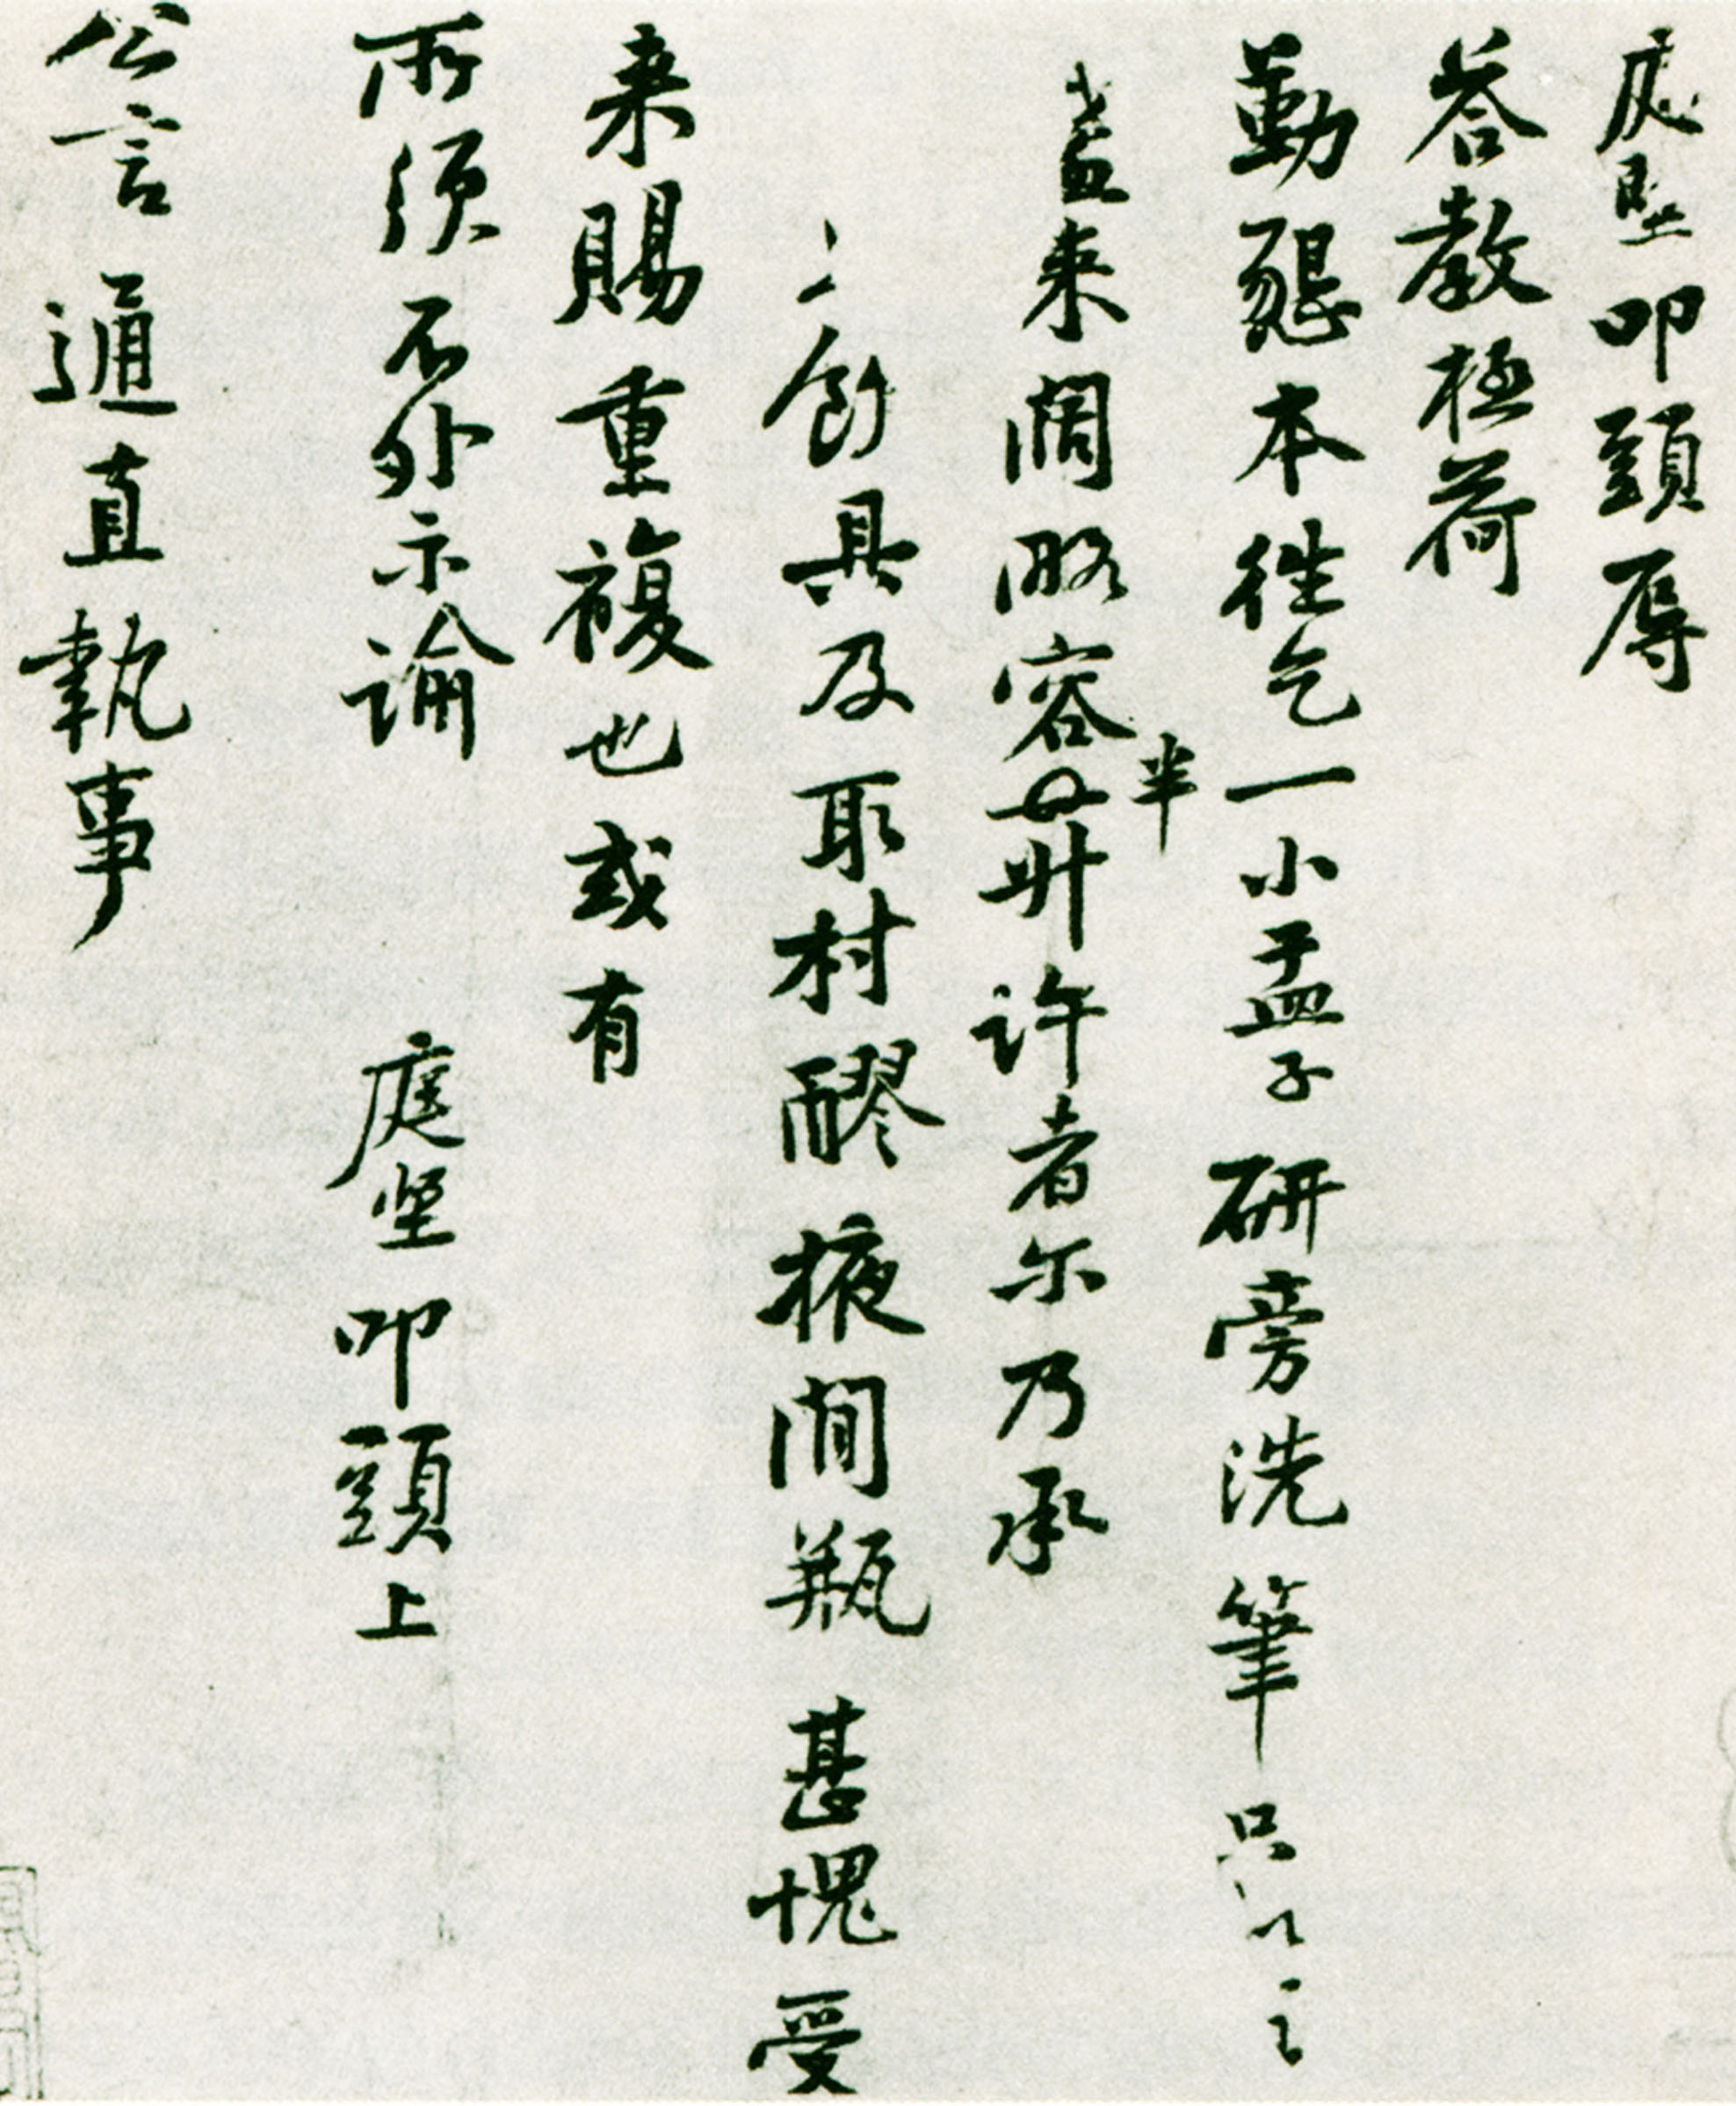 庭堅叩頭辱
荅教極荷
勤懇本往乞一小盂子研旁洗筆只以
盞来闊略容半升許者尔乃承
具及取村醪掖間瓶甚愧受
来賜重複也或有
所須不外示諭 庭坚叩頭上
公言通直執事